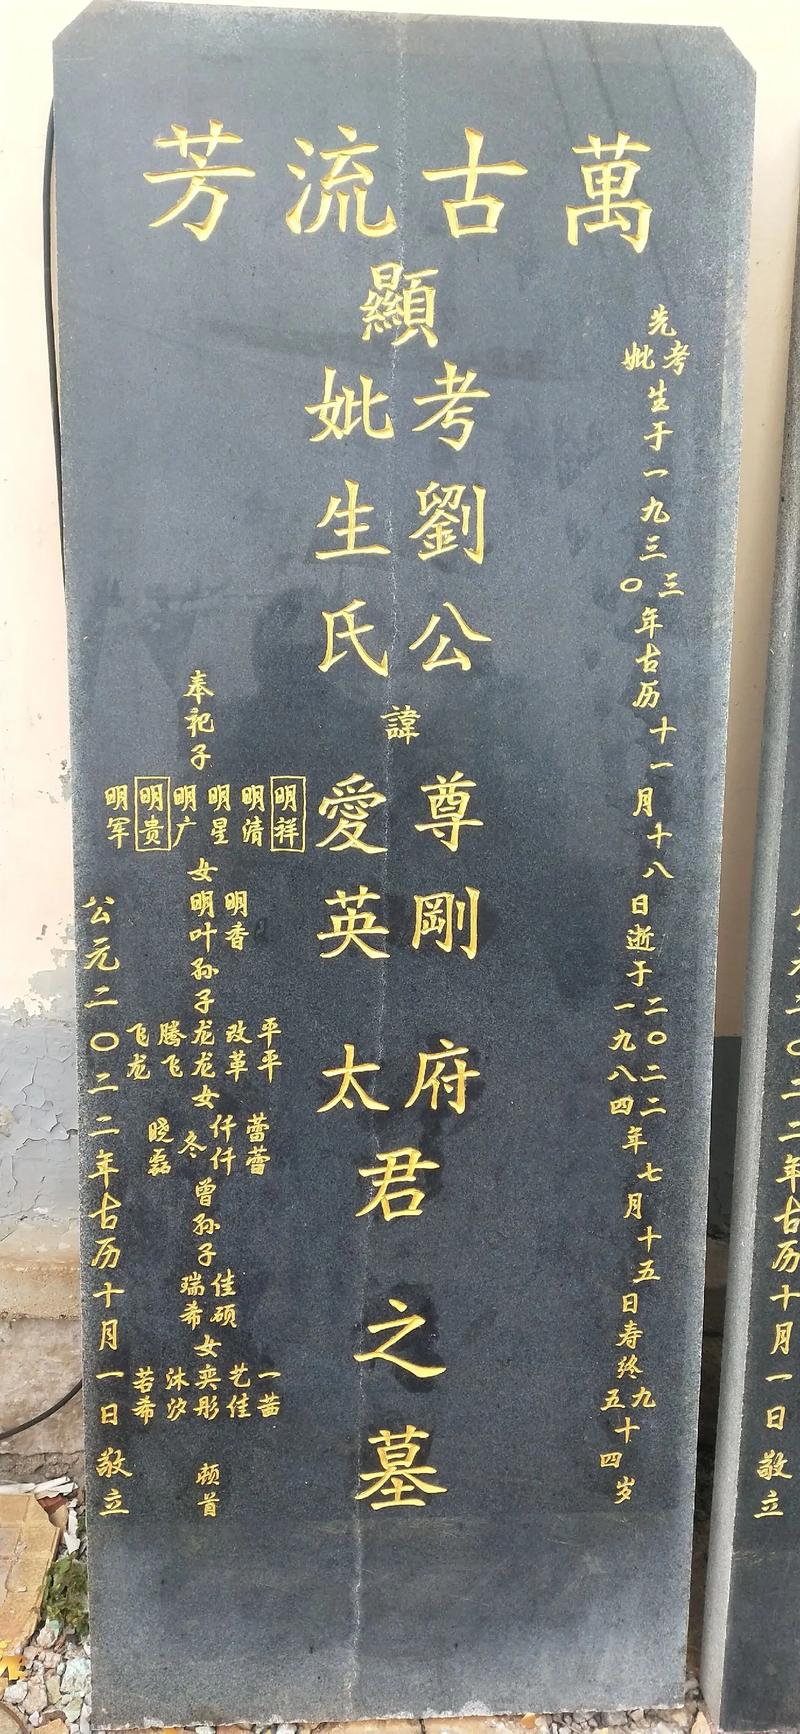 萬古流芳
先
考
妣
生于一九三
三
〇
年古历十一月十八日逝于
二〇二二
一九八四
年七月十五日寿终
九
五
十四岁
顯
考劉公
妣生氏
諱
尊剛府
愛英太
君之墓
奉祀子
明祥
明清
明星
明广
明贵
明军
女
明香
明叶
孙子
平平
改革
龙龙
腾飞
飞龙
女
蕾蕾
仟仟
冬
晓磊
曾孙子
佳硕
瑞希
女
一茜
艺佳
奕彤
沐汐
若希
顿首
公元二〇二二年古历十月一日敬立
公元二〇二二年古历十月一日敬立